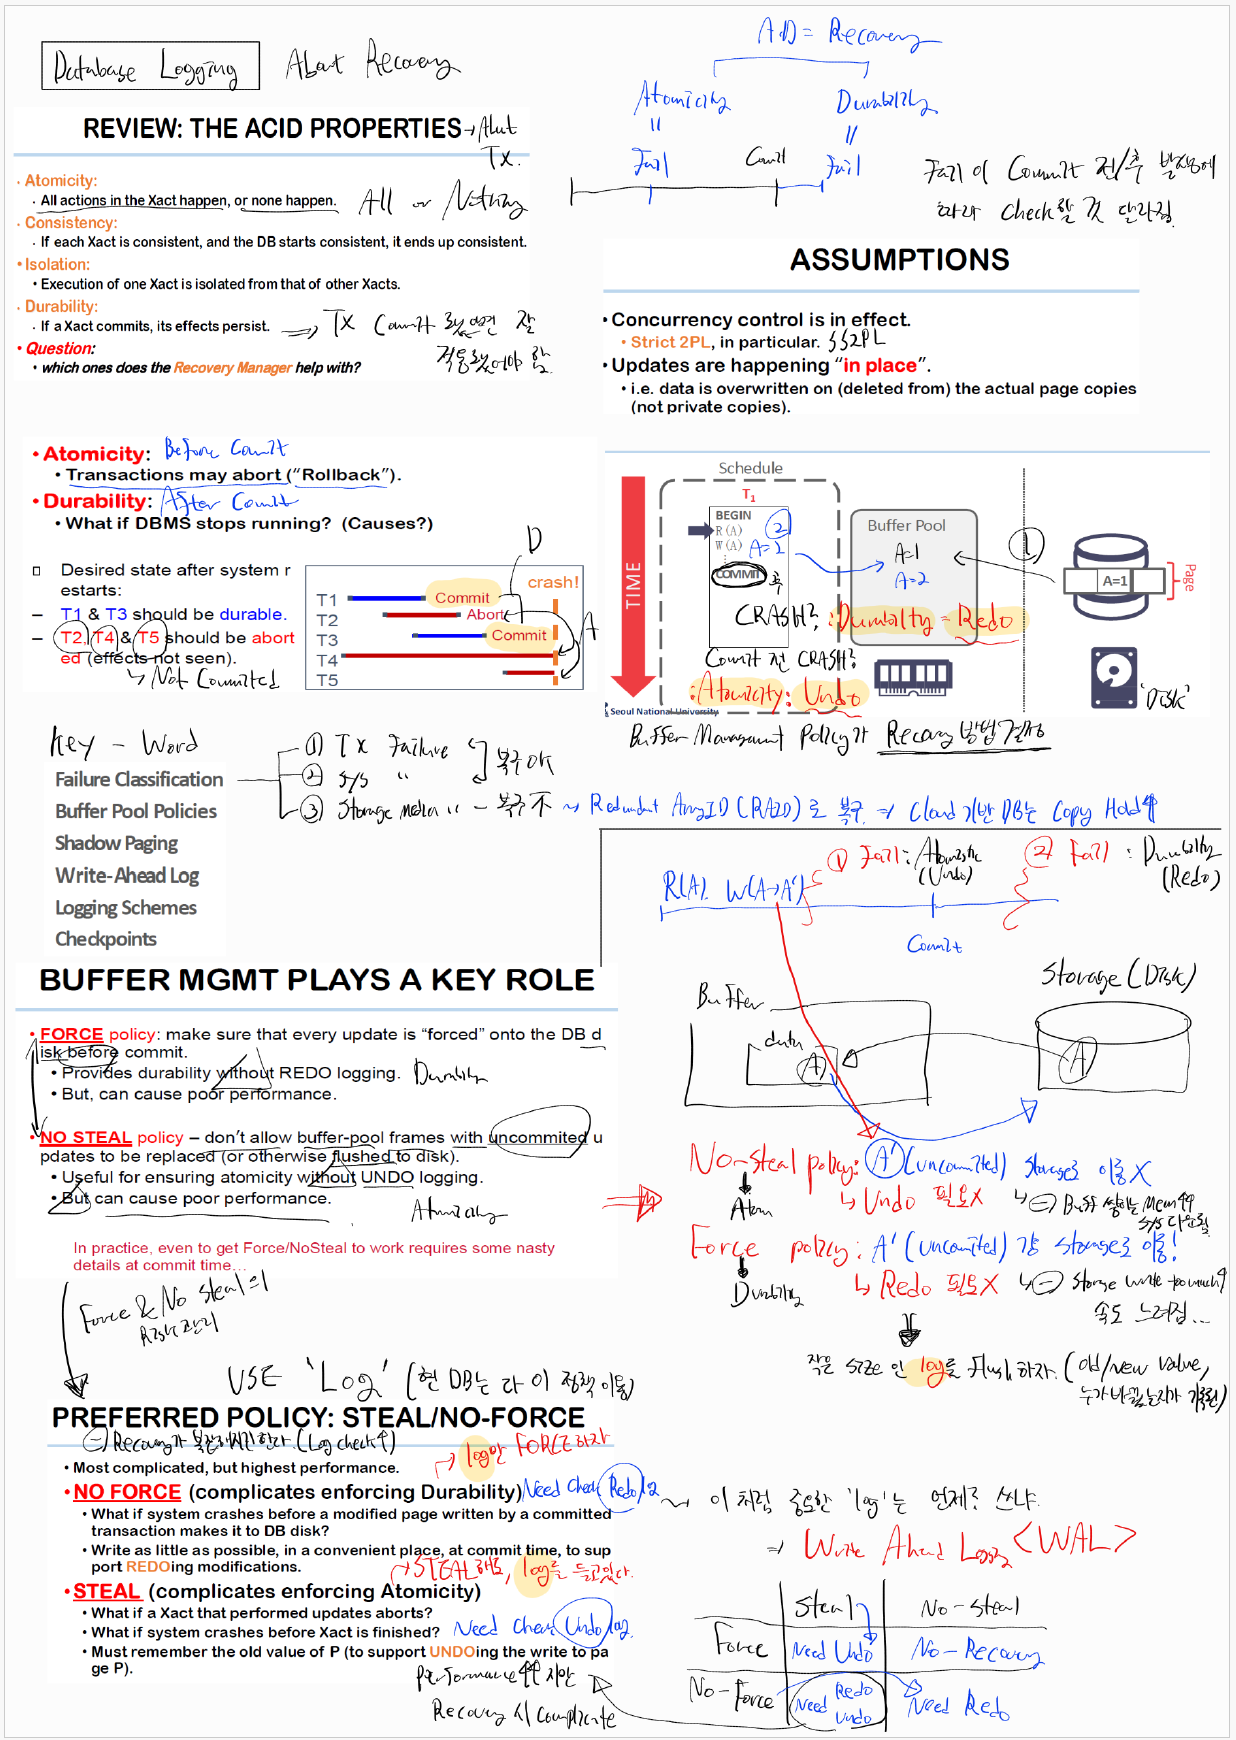 Database Logging
About Recovery
REVIEW: THE ACID PROPERTIES → About Tx.
· Atomicity:
· All actions in the Xact happen, or none happen. All or Nothing
· Consistency:
· If each Xact is consistent, and the DB starts consistent, it ends up consistent.
• Isolation:
• Execution of one Xact is isolated from that of other Xacts.
· Durability:
· If a Xact commits, its effects persist. ⇒ Tx Commit 됐으면 잘
적용됐어야 함.
• Question:
• which ones does the Recovery Manager help with?
AD = Recovery
Atomicity
Durability
Fail
Commit
Fail
Fail이 Commit 전/후 발생에
따라 check할 것 달라짐.
ASSUMPTIONS
• Concurrency control is in effect.
• Strict 2PL, in particular. SS2PL
• Updates are happening “in place”.
• i.e. data is overwritten on (deleted from) the actual page copies
(not private copies).
• Atomicity: Before Commit
• Transactions may abort (“Rollback”).
• Durability: After Commit
• What if DBMS stops running? (Causes?)
Desired state after system r
estarts:
– T1 & T3 should be durable.
– T2, T4 & T5 should be abort
ed (effects not seen).
↳ Not Committed
D
crash!
T1 Commit
T2 Abort
T3 Commit
T4
T5
A
Schedule
T1
BEGIN
R(A)
W(A) A=2
COMMIT 후
②
TIME
Buffer Pool
A=1
A=2
①
A=1
Page
CRASH? : Durability = Redo
Commit 전 CRASH?
: Atomicity : Undo
'Disk'
Seoul National University
Buffer Management Policy가 Recovery 방법 결정
Key - Word
Failure Classification
Buffer Pool Policies
Shadow Paging
Write-Ahead Log
Logging Schemes
Checkpoints
① Tx Failure
② S/S "
복구 OK
③ Storage Media " - 복구 不 → Redundant Array ID (RAID)로 복구 ⇒ Cloud 기반 DB는 Copy Hold↑
R(A). W(A→A')
① Fail : Atomicity
(Undo)
② Fail : Durability
(Redo)
Commit
Buffer
data
A
Storage (Disk)
A
BUFFER MGMT PLAYS A KEY ROLE
• FORCE policy: make sure that every update is “forced” onto the DB d
isk before commit.
• Provides durability without REDO logging. Durability
• But, can cause poor performance.
• NO STEAL policy – don’t allow buffer-pool frames with uncommited u
pdates to be replaced (or otherwise flushed to disk).
• Useful for ensuring atomicity without UNDO logging.
• But can cause poor performance.
Atomicity
In practice, even to get Force/NoSteal to work requires some nasty
details at commit time…
No-Steal policy: A' (uncommitted) Storage로 이동 X
Atom
↳ Undo 필요 X
↳ ⊖ Buff 쌓이는 Mem↑↑
S/S 다운됨
Force policy: A' (uncommitted) 걍 Storage로 이동!
Durability
↳ Redo 필요 X
↳ ⊖ Storage write too much↑
속도 느려짐...
작은 size인 log를 Flush 하자. (old/new value,
누가 바꿨는지가 기록됨)
Force & No Steal의
Risk 관리
USE 'Log' (현 DB는 다 이 정책 이용)
PREFERRED POLICY: STEAL/NO-FORCE
⊖ Recovery가 복잡해지긴 한다. (Log check↑)
→ log만 FORCE 하자
• Most complicated, but highest performance.
• NO FORCE (complicates enforcing Durability) Need Check Redo log
• What if system crashes before a modified page written by a committed
transaction makes it to DB disk?
• Write as little as possible, in a convenient place, at commit time, to sup
port REDOing modifications.
→ STEAL해도, log를 들고있다.
• STEAL (complicates enforcing Atomicity)
• What if a Xact that performed updates aborts?
• What if system crashes before Xact is finished? Need Check Undo log.
• Must remember the old value of P (to support UNDOing the write to pa
ge P).
Performance↑↑ 지만
Recovery 시 complicate
이처럼 중요한 'log'는 언제 쓰냐.
⇒ Write Ahead Logging <WAL>
Steal No-Steal
Force Need Undo No-Recovery
No-Force Need Redo Undo Need Redo